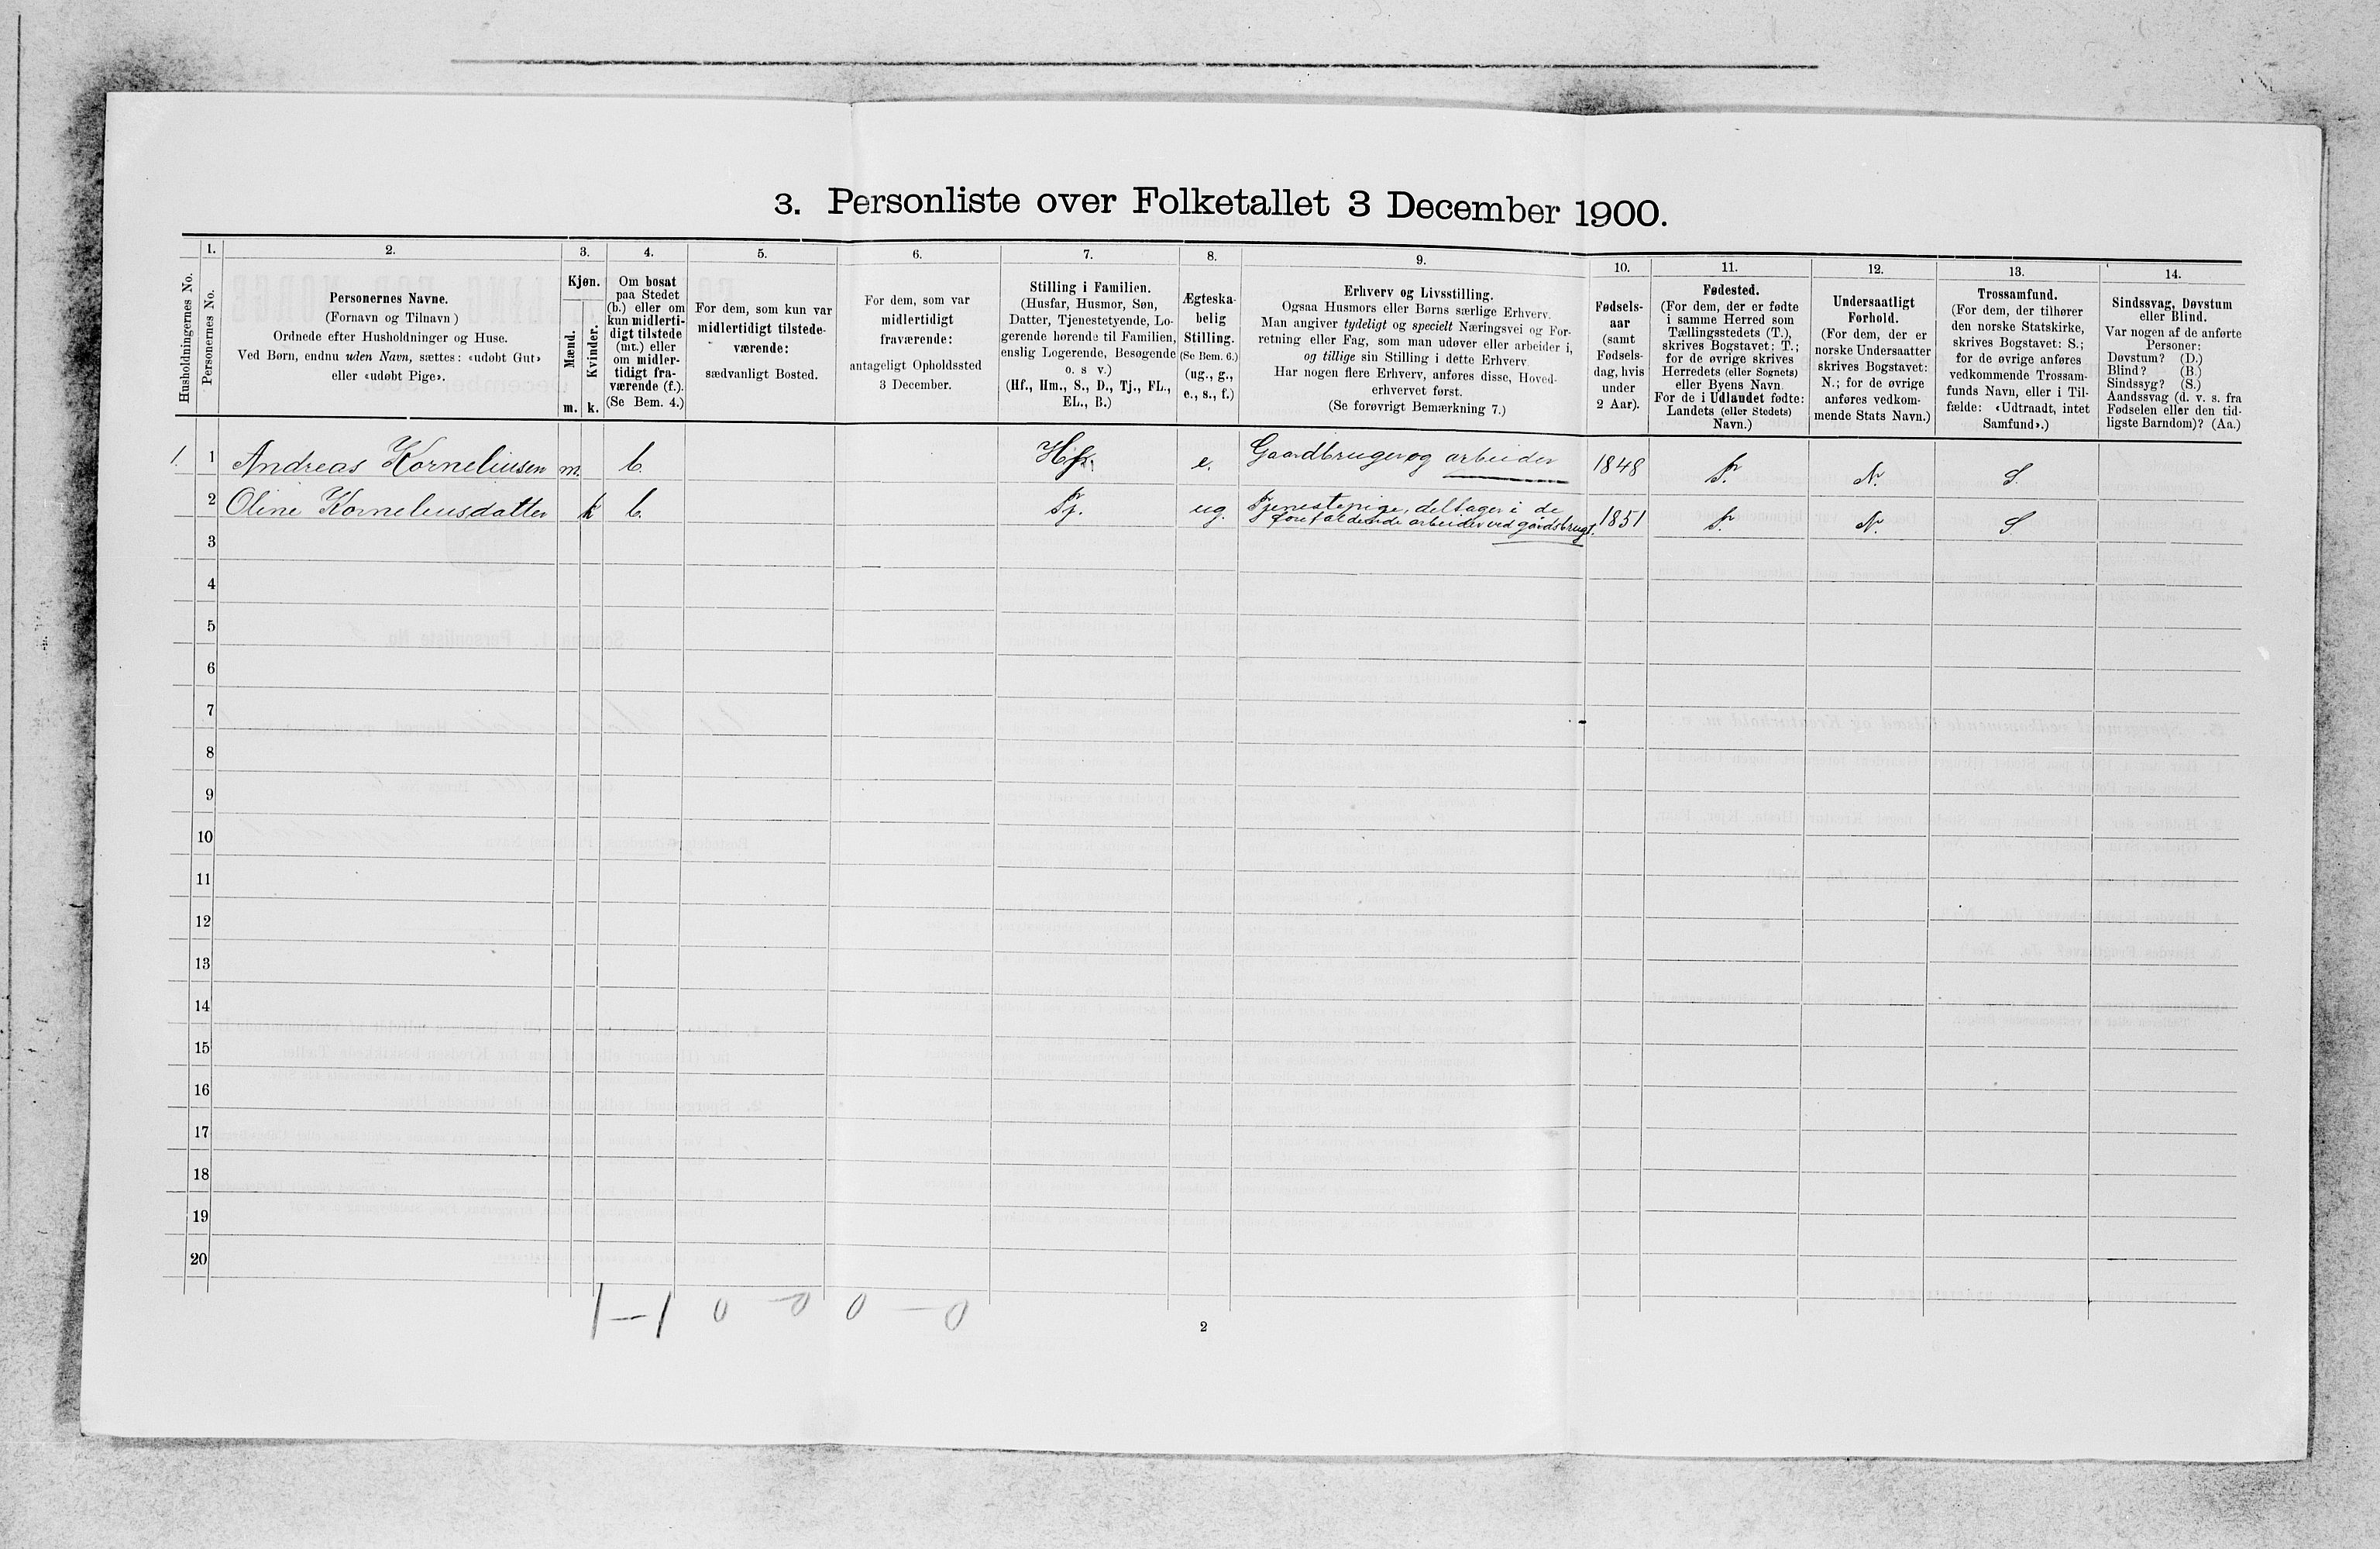 3. Personliste over Folketallet 3 December 1900.
Husholdningernes No.
1.
Personernes No.
2.
Personernes Navne.
(Fornavn og Tilnavn )
Ordnede efter Husholdninger og Huse.
Ved Børn, endnu uden Navn, sættes: «udøbt Gut»
eller «udøbt Pige».
3.
Kjøn.
Mænd.
Kvinder.
m. k.
4.
Om bosat
paa Stedet
(b.) eller om
kun midlerti-
digt tilstede
(mt.) eller
om midler-
tidigt fra-
værende (f.).
(Se Bem. 4.)
5.
For dem, som kun var
midlertidigt tilstede-
værende:
sædvanligt Bosted.
6.
For dem, som var
midlertidigt
fraværende:
antageligt Opholdssted
3 December.
7.
Stilling i Familien.
(Husfar, Husmor, Søn,
Datter, Tjenestetyende, Lo-
gerende hørende til Familien,
enslig Logerende, Besøgende
o. s v.)
(Hf., Hm., S., D., Tj., FL.,
EL., B.)
8.
Ægteska-
belig
Stilling.
(Se Bem. 6.)
(ug., g.,
e., s., f.)
9.
Erhverv og Livsstilling.
Ogsaa Husmors eller Børns særlige Erhverv.
Man angiver tydeligt og specielt Næringsvei og For-
retning eller Fag, som man udøver eller arbeider i,
og tillige sin Stilling i dette Erhverv.
Har nogen flere Erhverv, anføres disse, Hoved-
erhvervet først.
(Se forøvrigt Bemærkning 7.)
10.
Fødsels-
aar
(samt
Fødsels-
dag, hvis
under
2 Aar).
11.
Fødested.
(For dem, der er fødte
i samme Herred som
Tællingsstedets (T.),
skrives Bogstavet: T.;
for de øvrige skrives
Herredets (eller Sognets)
eller Byens Navn.
For de i Udlandet fødte:
Landets (eller Stedets)
Navn.)
12.
Undersaatligt
Forhold.
(For dem, der er
norske Undersaatter
skrives Bogstavet:
N.; for de øvrige
anføres vedkom-
mende Stats Navn.)
13.
Trossamfund.
(For dem, der tilhører
den norske Statskirke,
skrives Bogstavet: S.;
for de øvrige anføres
vedkommende Trossam-
funds Navn, eller i Til-
fælde: «Udtraadt, intet
Samfund».)
14.
Sindssvag, Døvstum
eller Blind.
Var nogen af de anførte
Personer:
Døvstum? (D.)
Blind? (B.)
Sindssyg? (S.)
Aandssvag (d. v. s. fra
Fødselen eller den tid-
ligste Barndom)? (Aa.)
1. 1 Andreas Korneliusen m. b. Hf. e. Gaardbruger og arbeider 1848 T. N. S.
2 Oline Korneliusdatter k b. Tj. ug. Tjenestepige, deltager i de
forefaldende arbeider ved gårdsbrugt. 1851 T. N. S
3
4
5
6
7
8
9
10
11
12
13
14
15
16
17
18
19
20
1–1 0 0 0 – 0
2